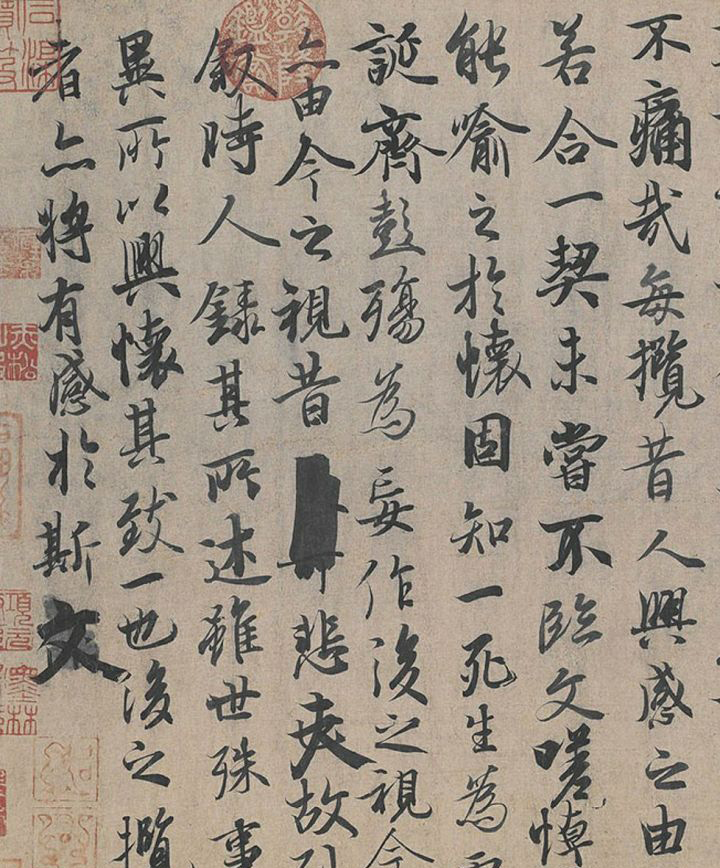 不痛哉每攬昔人興感之由
若合一契未嘗不臨文嗟悼
能喻之於懷固知一死生為
誕齊彭殤為妄作後之視今
亦由今之視昔悲夫故列
敘時人錄其所述雖世殊事
異所以興懷其致一也後之攬
者亦將有感於斯文